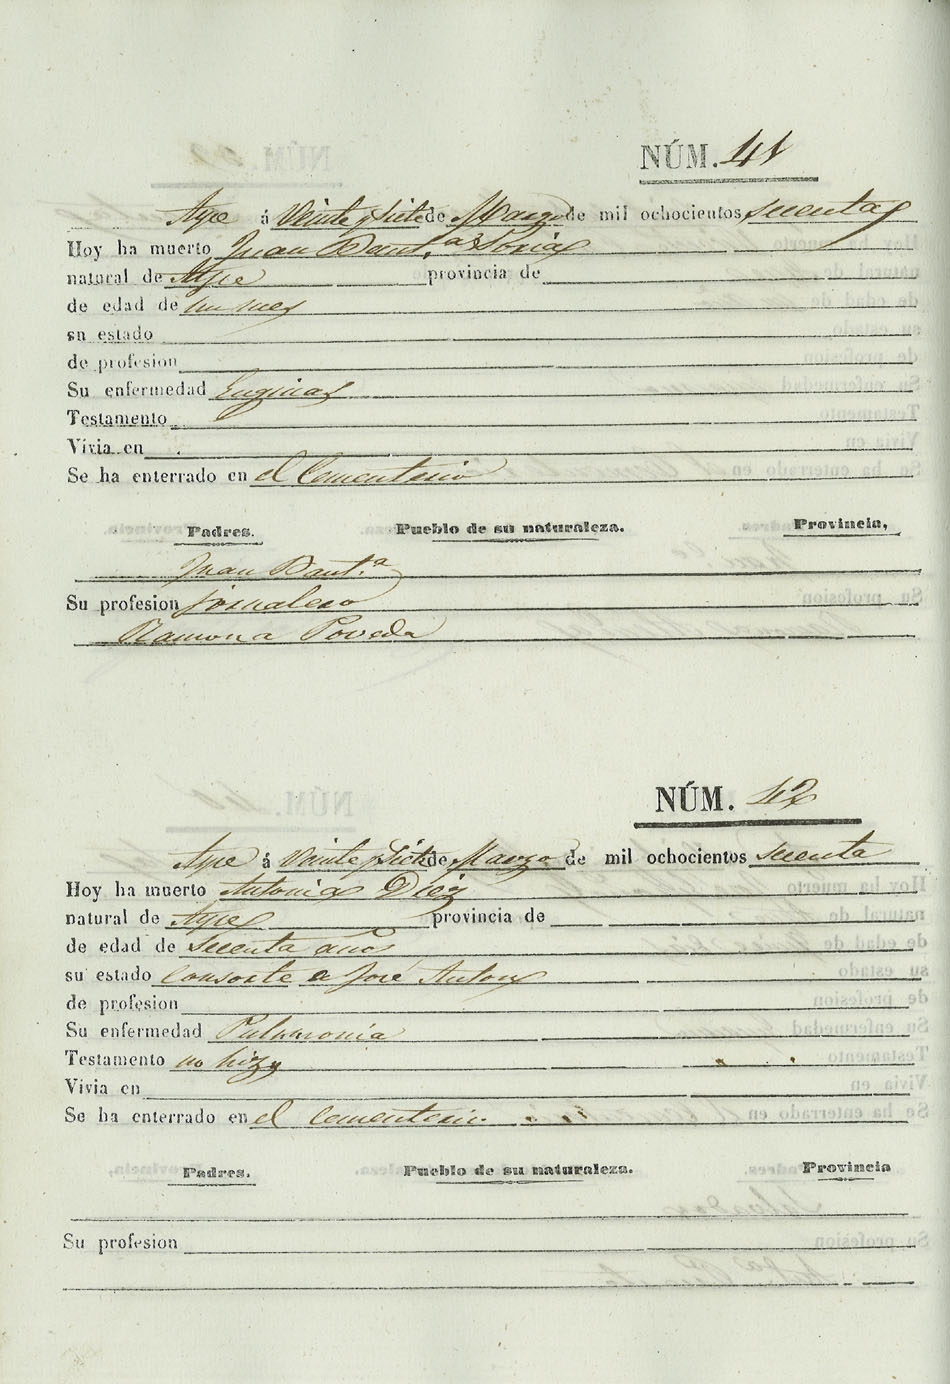 NÚM. 41
Aspe á Veinte y Siete de Marzo de mil ochocientos sesenta
Hoy ha muerto Juan Baut.ª
natural de Aspe provincia de
de edad de un mes
su estado
de profesion
Su enfermedad Enginas
Testamento
Vivia en
Se ha enterrado en el Cementerio
Padres. Pueblo de su naturaleza. Provincia,
Juan Baut.ª
Su profesion jornalero
Ramona Poveda
NÚM. 42
Aspe á Veinte y Siete de Marzo de mil ochocientos sesenta
Hoy ha muerto Antonia Diez
natural de Aspe provincia de
de edad de sesenta años
su estado consorte de José Anton
de profesion
Su enfermedad Pulmonia
Testamento no hizo
Vivia en
Se ha enterrado en el Cementerio
Padres. Pueblo de su naturaleza. Provincia
Su profesion